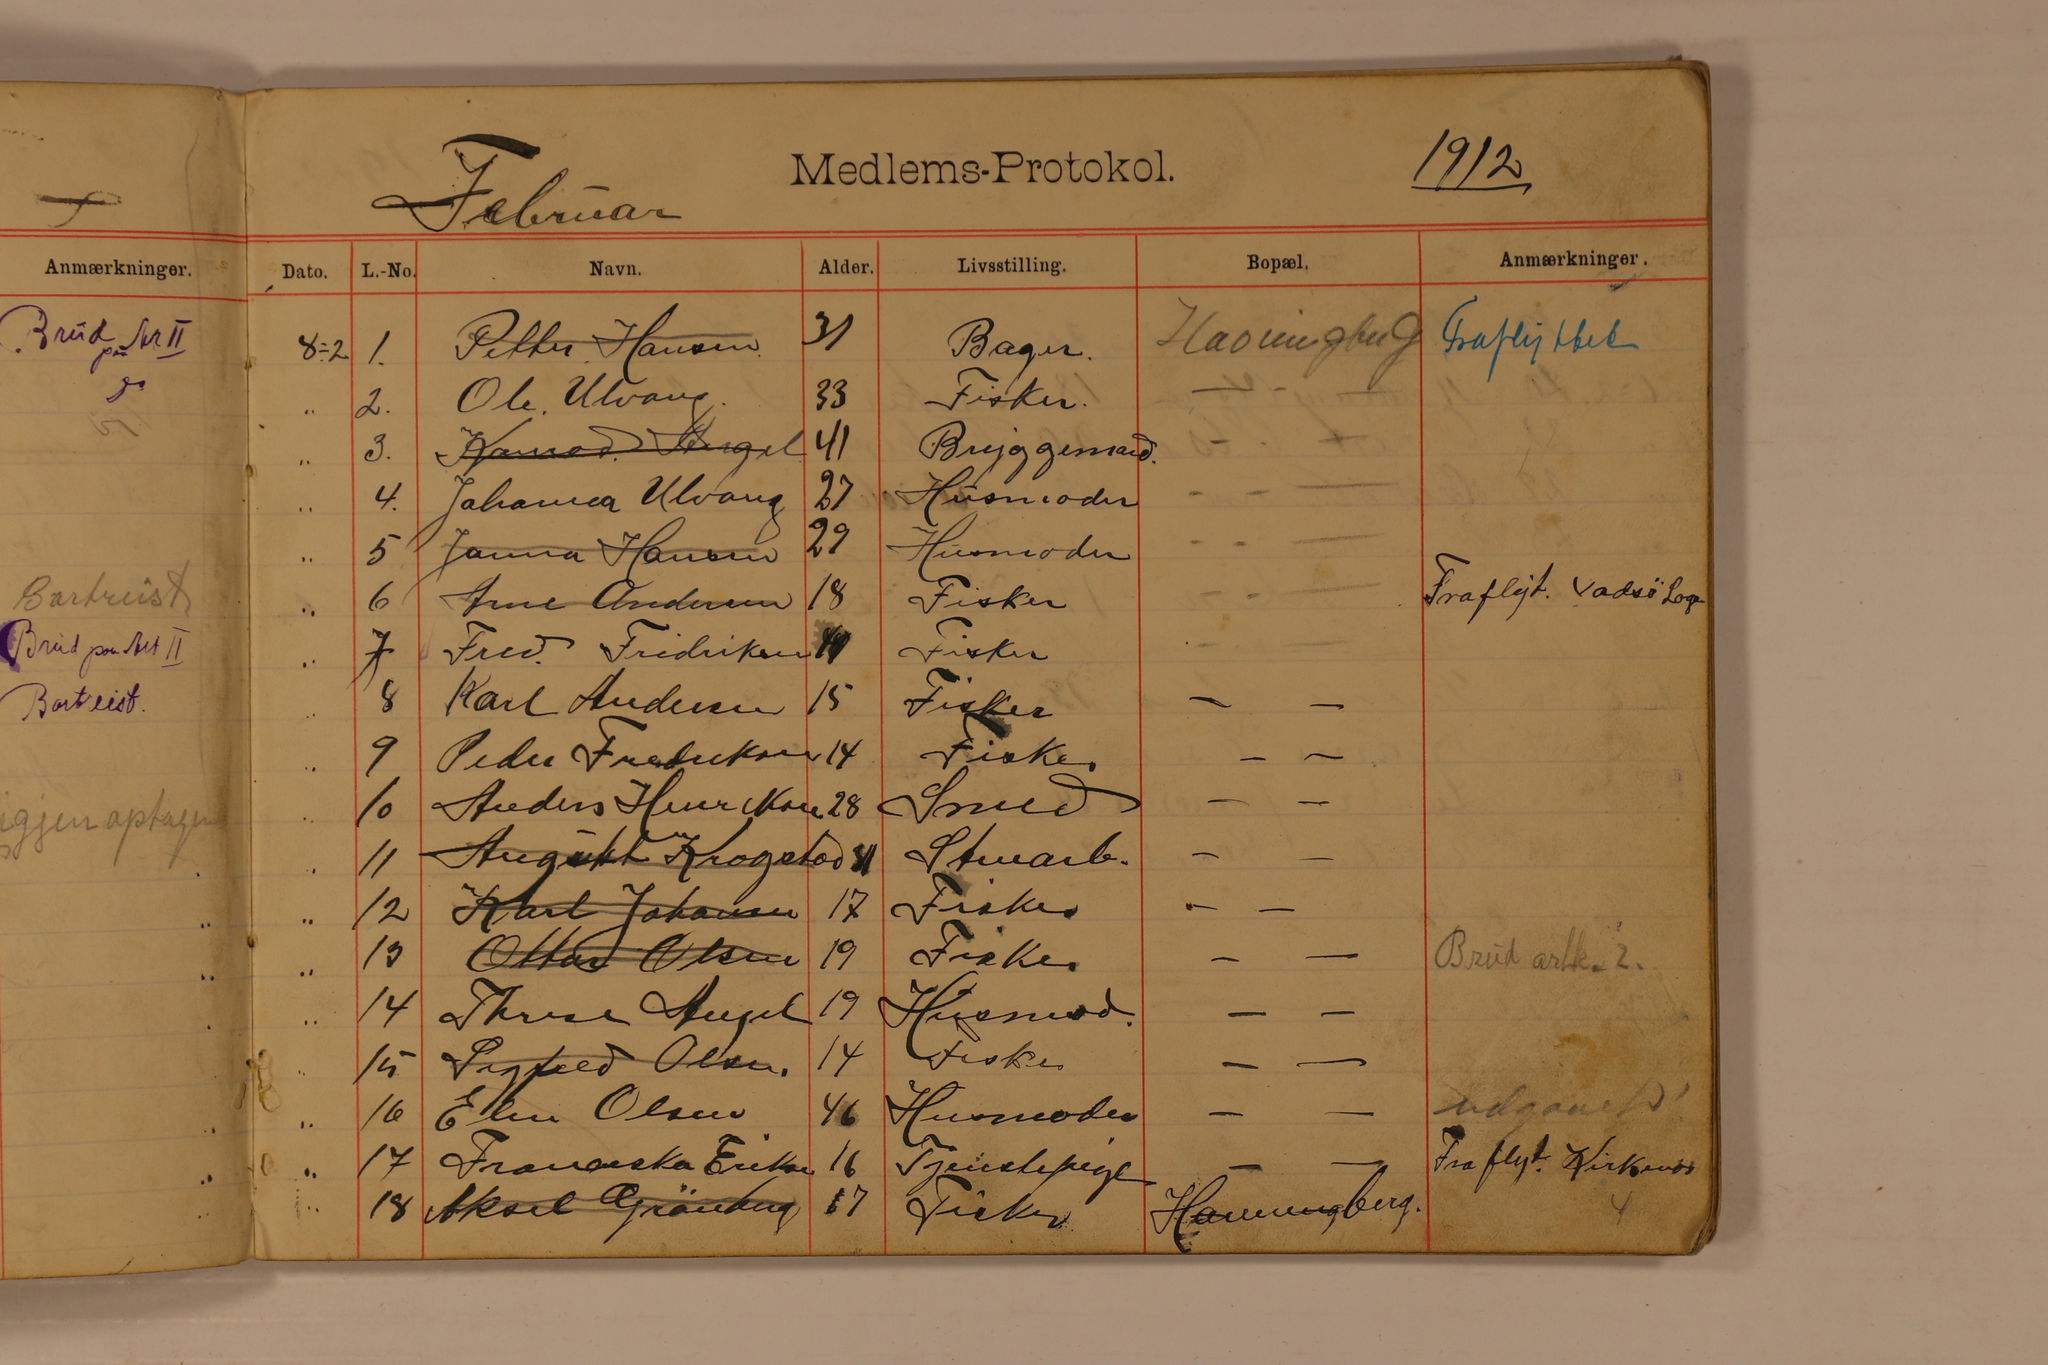 Anmærkninger.
Brud paa Art II
Bortreist
Brud paa Art II
Bortreist.
igjen optagen
Februar
Medlems-Protokol.
1912
Dato. L.-No. Navn. Alder. Livsstilling. Bopæl. Anmærkninger.
8-2 1. Petter Hansen 31 Bager. Havningberg Fraflyttet
" 2. Ole Ulvang. 33 Fisker. - " -
" 3. Konrad Angel 41 Bryggemand. - " -
" 4. Johanna Ulvang 27 Husmoder - - -
" 5 Janna Hansen 29 Husmoder - - -
" 6 Arne Andersen 18 Fisker - - - Fraflyt. Vadsö Loge
" 7 Fred. Fridriksen Fisker - - -
" 8 Karl Andersen 15 Fisker - -
" 9 Peder Fredriksen 14 Fisker - -
" 10 Anders Henriksen 28 Smed - -
" 11 August Krogstad Stuarb. - -
" 12 Karl Johansen 17 Fisker - -
" 13 Ottar Olsen 19 Fisker - - Brud artk. 2.
" 14 Therese Angel 19 Husmod. - -
" 15 Sigfred Olsen. 14 Fisker - -
" 16 Elen Olsen 46 Husmoder - - udgaaet
" 17 Franciska Eriksen 16 Tjenestepige - - Fraflyt. Kirkenes
" 18 Aksel Grönberg 17 Fisker Hamningberg. 4